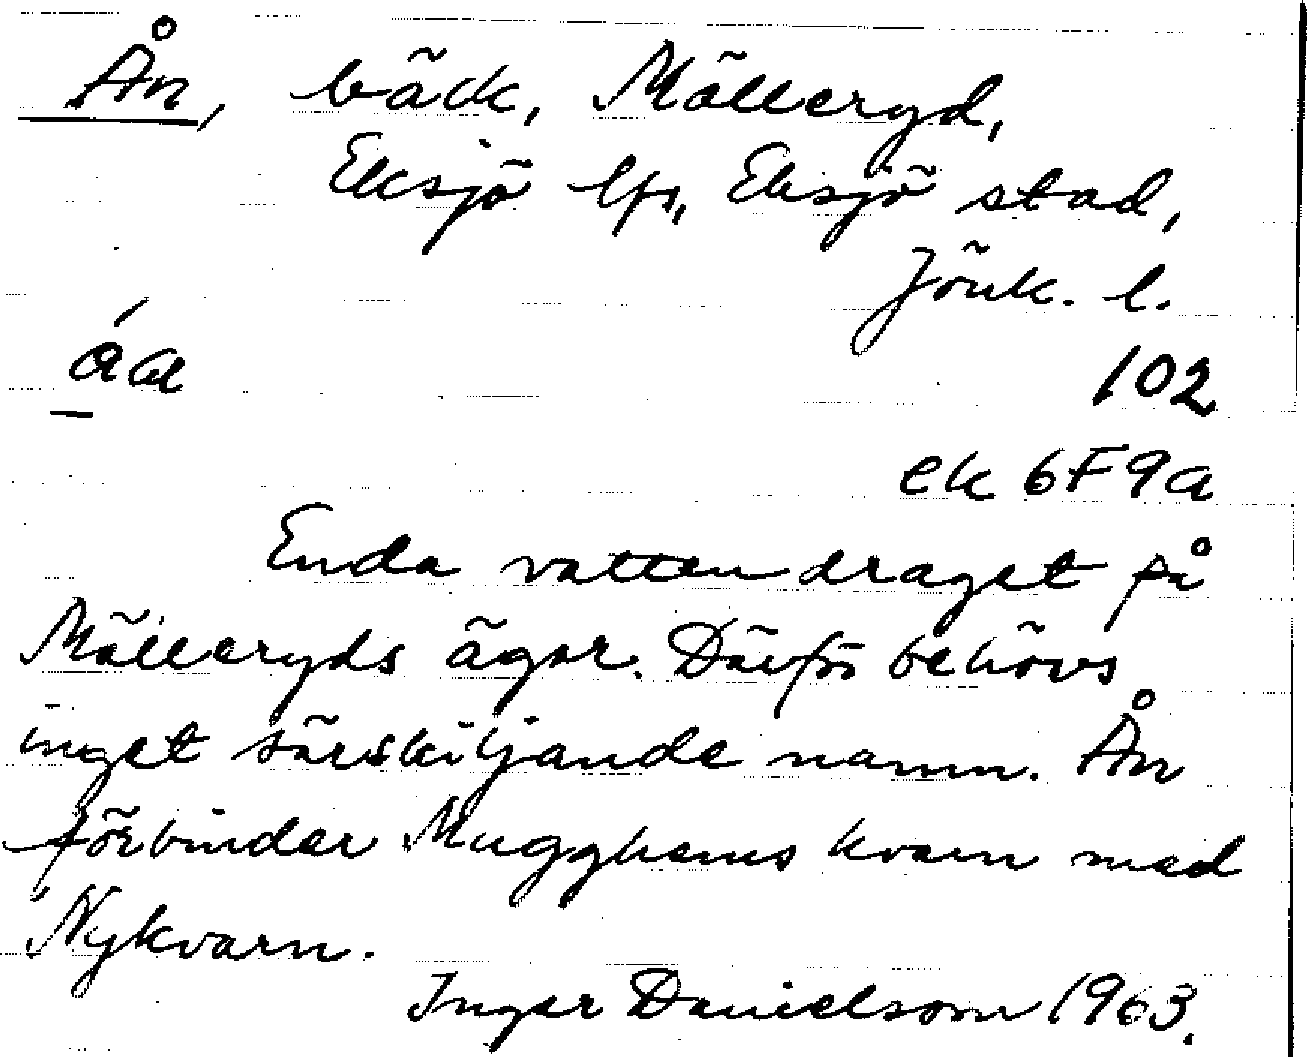 Ån, bäck, Mälleryd,
Eksjö lfs, Eksjö stad,
Jönk. l.
102
ek 6F9a
Enda vattendraget på
Mälleryds ägor. Därför behövs
inget särskiljande namn. Ån
förbinder Mugghems kvarn med
Nykvarn.
Ingar Danielsson 1963.